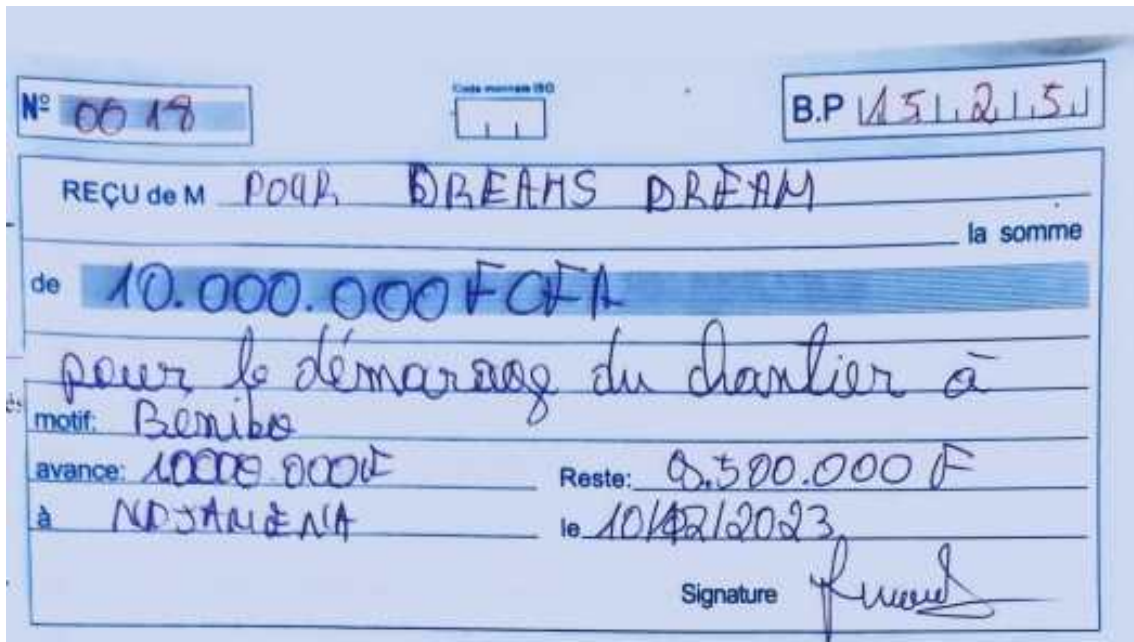 Nº 0018
Code monnaie ISO
B.P 1525
REÇU de M POUR DREAMS DREAM
la somme
de 10.000.000 F CFA
pour le démarage du chantier à
motif: Benibo
avance: 10000.000F Reste: 8.500.000 F
à NDJAMENA le 10/12/2023
Signature